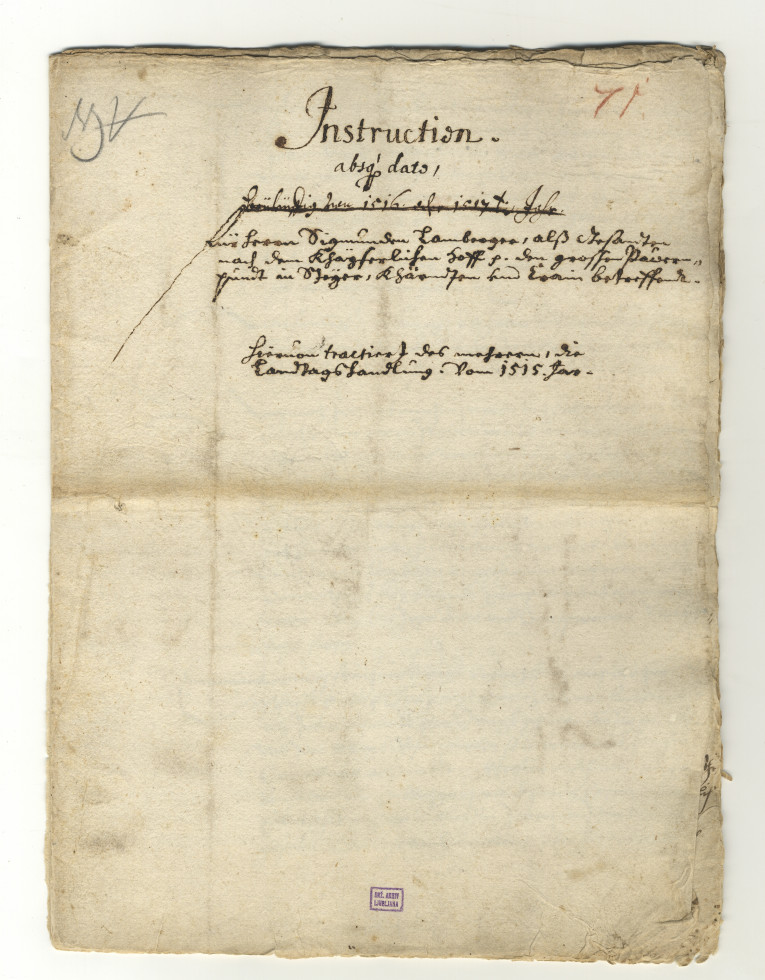 71
Instruction.
absq̃ dato,
von 1516. oder 1517t. Jahr.
für Herrn Sigmunden Lamberger, alß Gesandten
nach dem Khayserlichen Hoff p. den grossen Pauern-
pundt in Steyer, Khärndten und Crain betreffendt.
Hieruon tractiert des mehrern, die
Landtagshandlung. Vom 1515. Jar.
DRŽ. ARHIV
LJUBLJANA